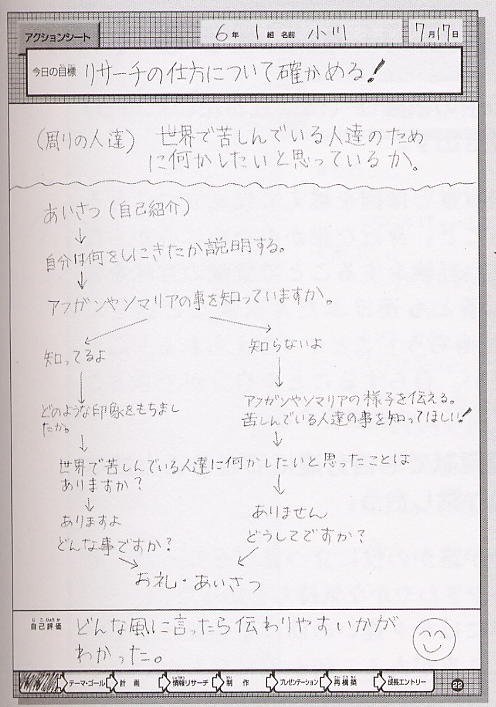 アクションシート 6年 1組 名前 小川 7月17日
今日の目標 リサーチの仕方について確かめる!
(周りの人達) 世界で苦しんでいる人達のため
に何かしたいと思っているか。
あいさつ(自己紹介)
↓
自分は何をしにきたか説明する。
↓
アフガンやソマリアの事を知っていますか。
知ってるよ 知らないよ
どのような印象をもちまし
たか。
アフガンやソマリアの様子を伝える。
苦しんでいる人達の事を知ってほしい!
↓ ↓
世界で苦しんでいる人達に何かしたいと思ったことは
ありますか?
↓ ↓
ありますよ ありません
どんな事ですか? どうしてですか?
お礼・あいさつ
自己評価 どんな風に言ったら伝わりやすいかが
わかった。
テーマ・ゴール 計画 情報リサーチ 制作 プレゼンテーション 再構築 成長エントリー